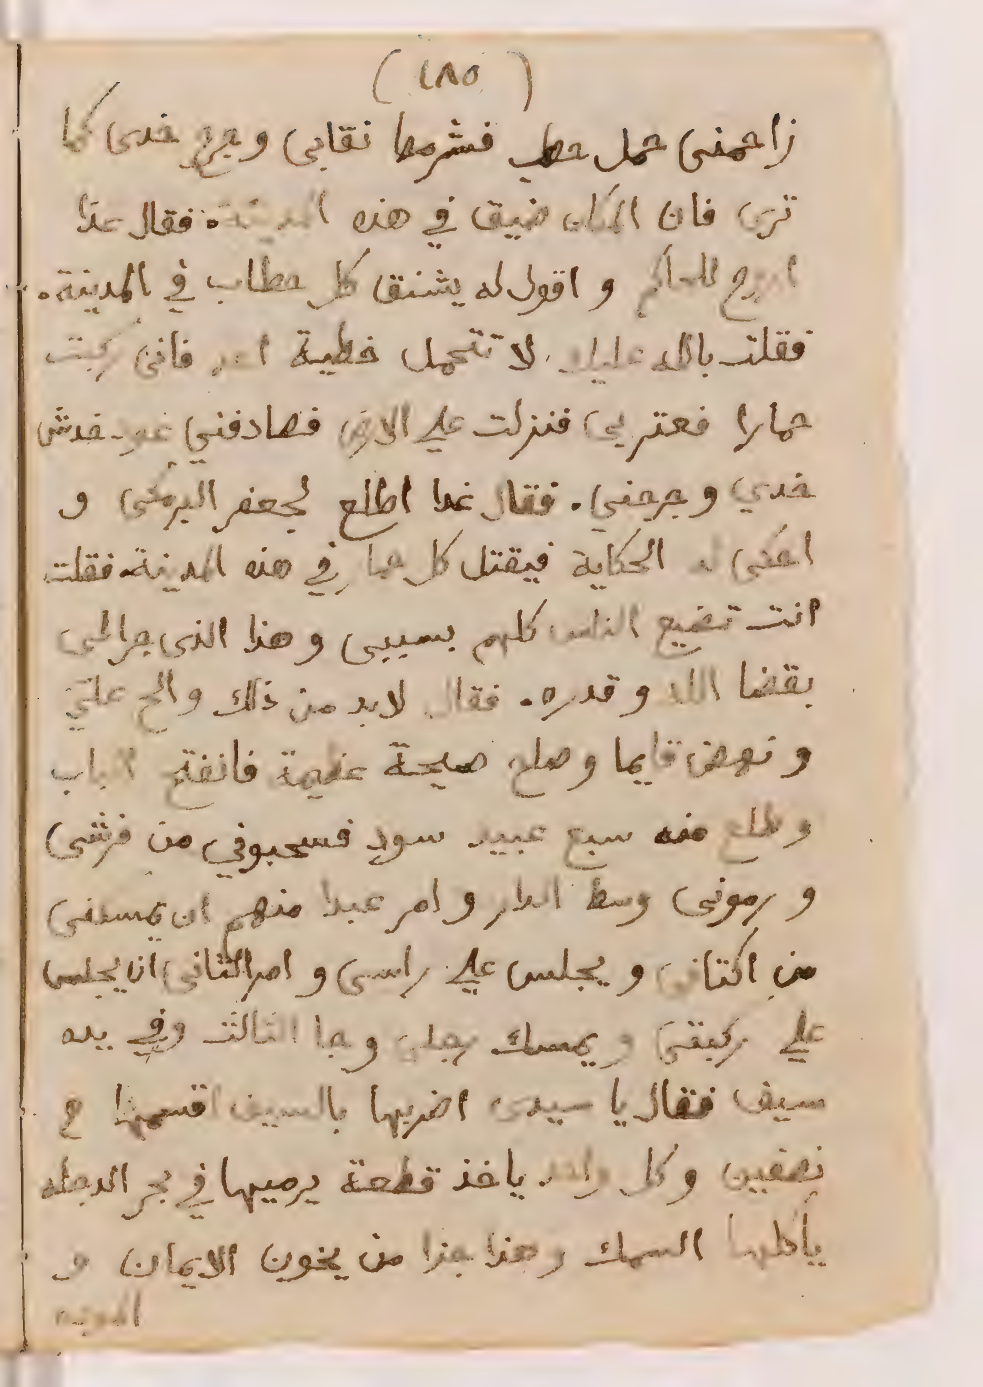 (١٨٥)
زاحمنى حمل حطب فشرمط نقابى وجرح خدى كما
ترى فان المكان ضيق في هذه المدينة. فقال غدا
اروح للحاكم و اقول له يشنق كل حطاب في المدينة.
فقلت بالله عليك لا تتحمل خطية احد فانى ركبت
حمارا فعتر بى فنزلت علي الارض فصادفني عود خدش
خدي وجرحني. فقال غدا اطلع لجعفر البرمكى و
احكى له الحكاية فيقتل كل حمار في هذه المدينة. فقلت
انت تضيع الناس كلهم بسببى وهذا الذى جرالى
بقضا الله وقدره. فقال لابد من ذلك والح علىّ
و نهض قايما وصاح صيحة عظيمة فانفتح الباب
وطلع منه سبع عبيد سود فسحبوني من فرشى
و رمونى وسط الدار و امر عبدا منهم ان يمسكنى
من اكتافى و يجلس علي راسى و امر الثانى ان يجلس
علي ركبتى ويمسك رجلى وجا الثالث وفي يده
سيف فقال يا سيدى اضربها بالسيف اقسمها
نصفين وكل واحد ياخذ قطعة يرميها في بحر الدجله
يأكلها السمك وهذا جزا من يخون الايمان و
الموده